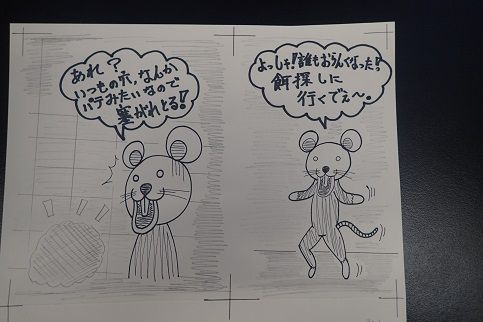 よっしゃ!誰もおらんくなった!
餌探しに
行くでぇ〜。
あれ?
いつもの穴、なんか
パテみたいなので
塞がれとる!